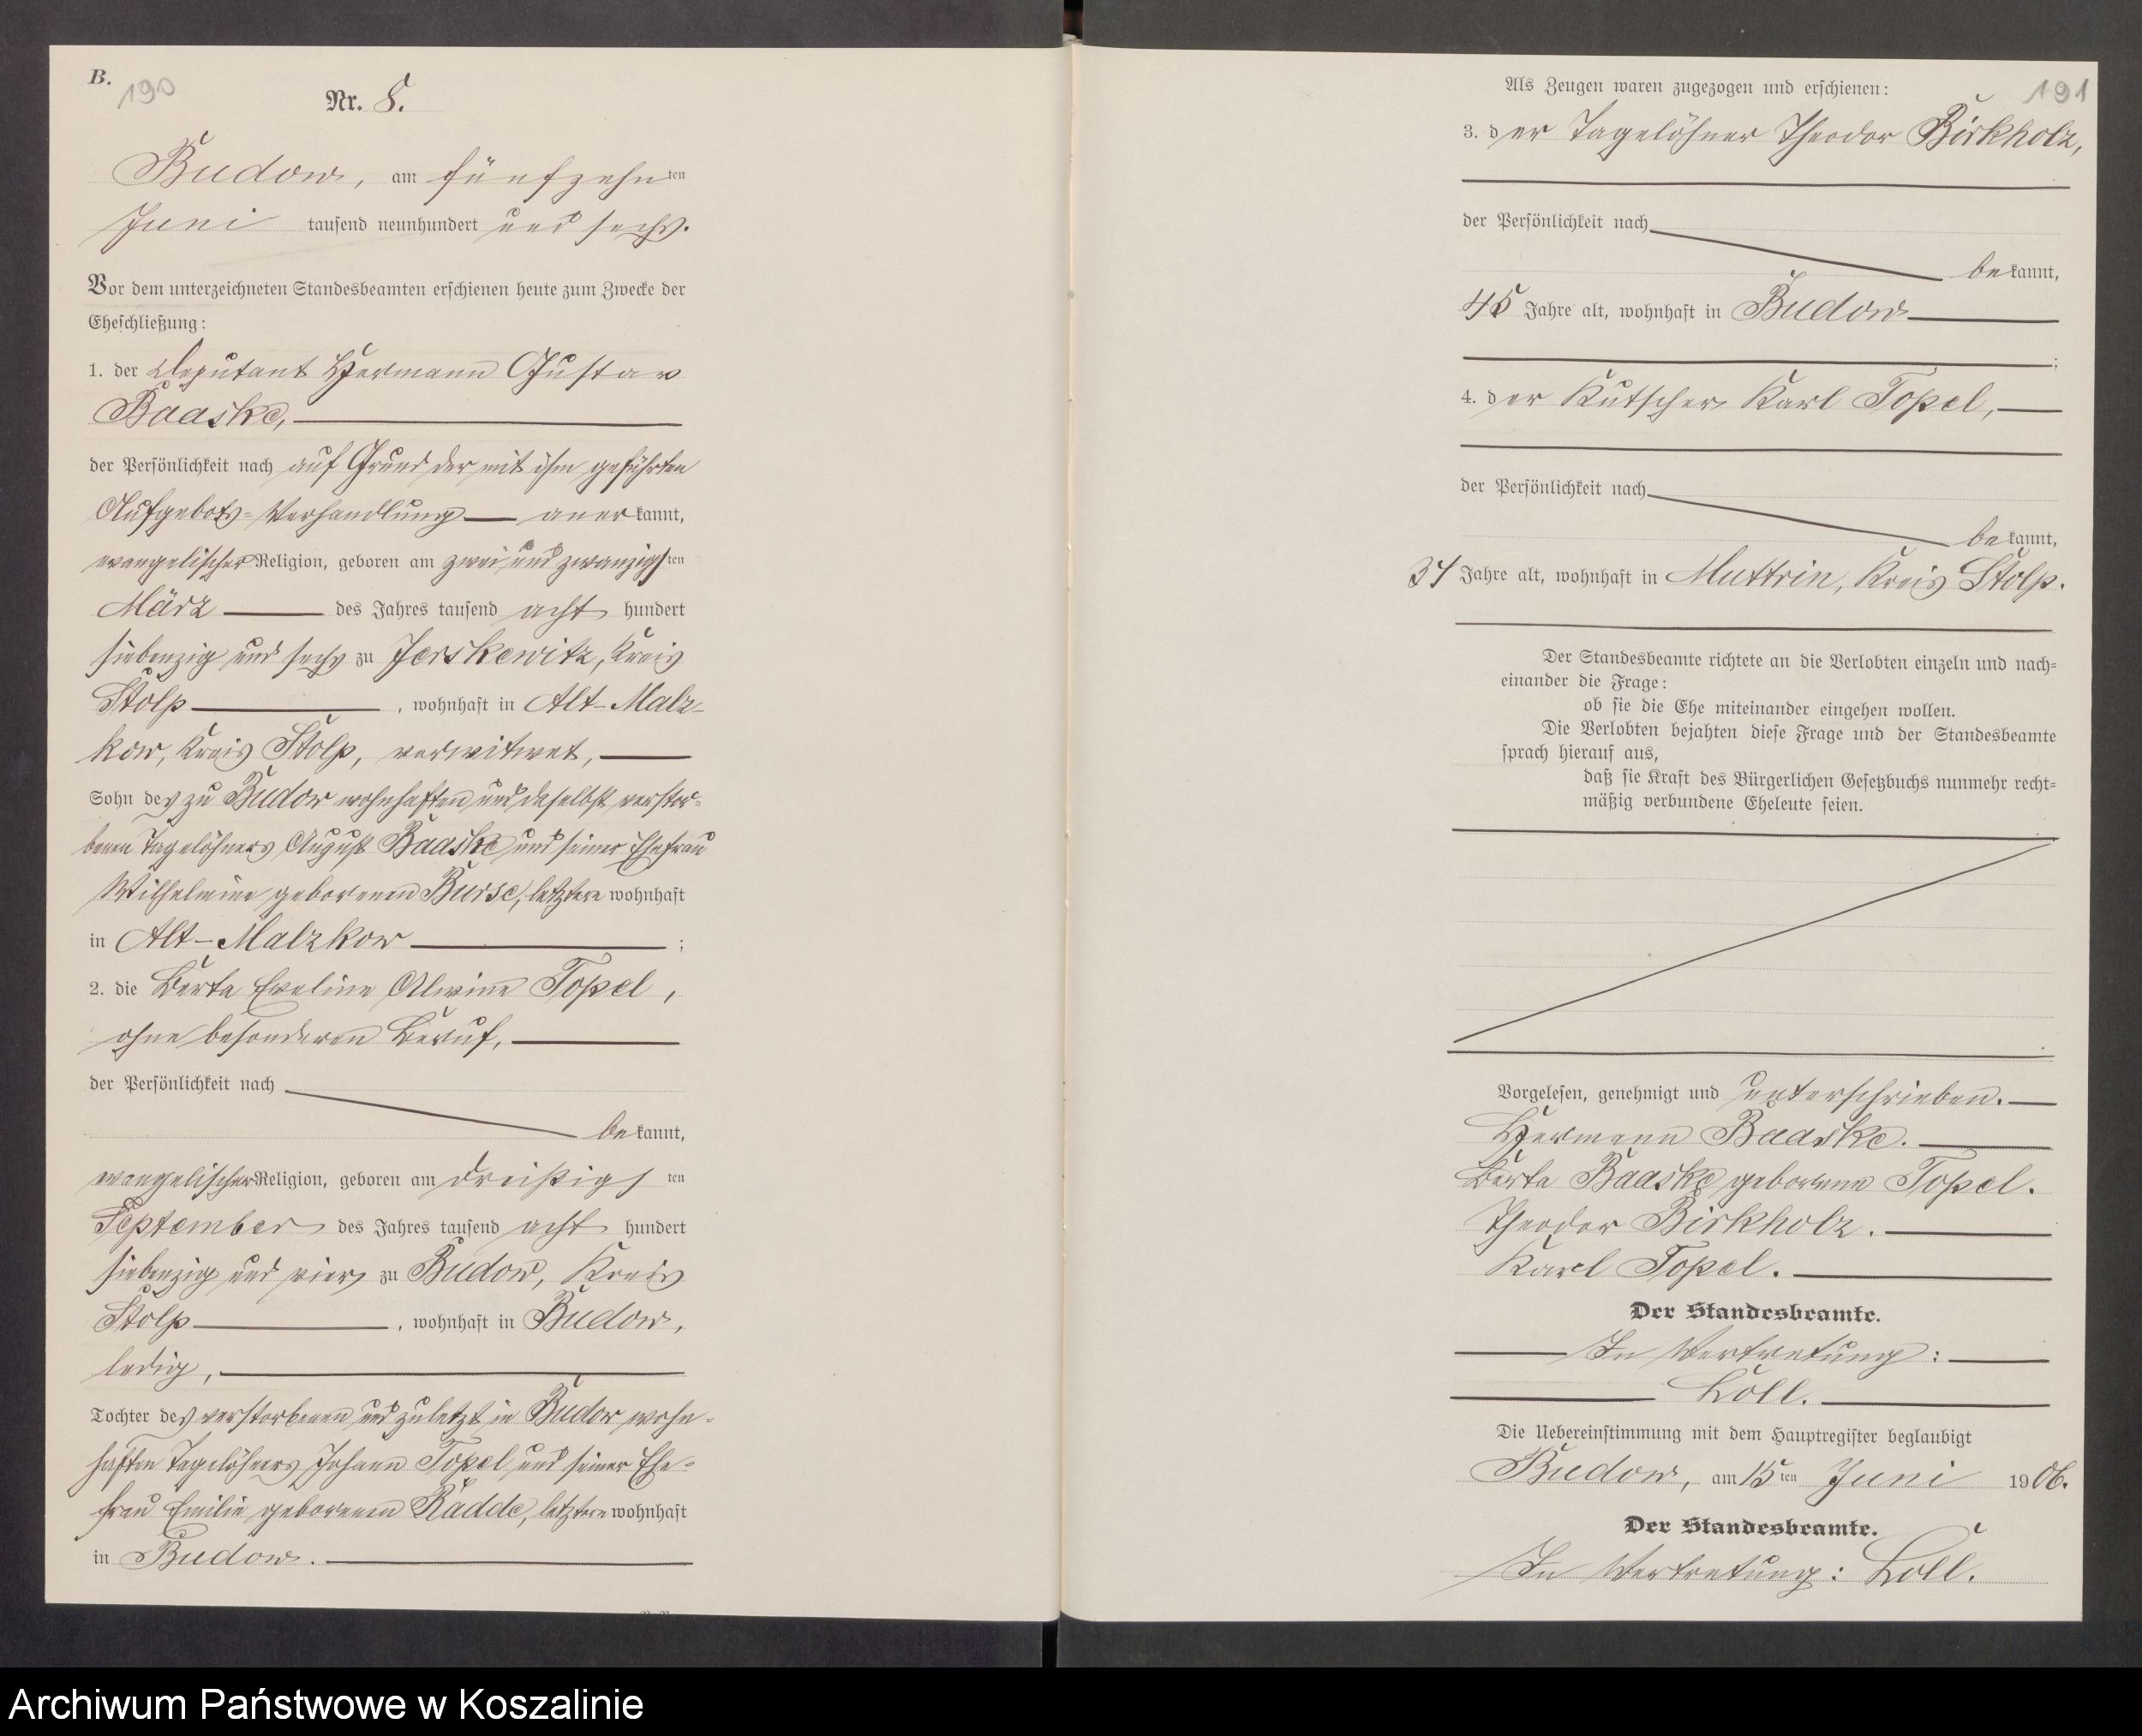 B.
190
Nr. 8.
Budow, am fünfzehnten
Juni tausend neunhundert und sechs.
Vor dem unterzeichneten Standesbeamten erschienen heute zum Zwecke der
Eheschließung:
1. der Deputant Hermann Gustav
Baaske,
der Persönlichkeit nach auf Grund der mit ihm geführten
Aufgebots-Verhandlung anerkannt,
evangelischer Religion, geboren am zwei und zwanzigsten
März des Jahres tausend acht hundert
siebenzig und sechs zu Jerskewitz, Kreis
Stolp, wohnhaft in Alt-Malz-
kow, Kreis Stolp, verwitwet,
Sohn des zu Budow wohnhaften und daselbst verstor-
benen Tagelöhners August Baaske und seiner Ehefrau
Wilhelmine geborenen Burse, letztere wohnhaft
in Alt-Malzkow ;
2. die Berta Eveline Alwine Topel,
ohne besonderen Beruf,
der Persönlichkeit nach
bekannt,
evangelischer Religion, geboren am dreißigsten
September des Jahres tausend acht hundert
siebenzig und vier zu Budow, Kreis
Stolp, wohnhaft in Budow,
ledig,
Tochter des verstorbenen und zuletzt in Budow wohn-
haften Tagelöhners Johann Topel und seiner Ehe-
frau Emilie geborenen Radde, letztere wohnhaft
in Budow.
191
Als Zeugen waren zugezogen und erschienen:
3. der Tagelöhner Theodor Birkholz,
der Persönlichkeit nach
bekannt,
45 Jahre alt, wohnhaft in Budow
;
4. der Kutscher Karl Topel,
der Persönlichkeit nach
bekannt,
Jahre alt, wohnhaft in Muttrin, Kreis Stolp.
Der Standesbeamte richtete an die Verlobten einzeln und nach-
einander die Frage:
ob sie die Ehe miteinander eingehen wollen.
Die Verlobten bejahten diese Frage und der Standesbeamte
sprach hierauf aus,
daß sie kraft des Bürgerlichen Gesetzbuchs nunmehr recht-
mäßig verbundene Eheleute seien.
Vorgelesen, genehmigt und unterschrieben.
Hermann Baaske.
Berta Baaske geborene Topel.
Theodor Birkholz.
Karl Topel.
Der Standesbeamte.
In Vertretung:
Loll.
Die Uebereinstimmung mit dem Hauptregister beglaubigt
Budow, am 15ten Juni 1906.
Der Standesbeamte.
In Vertretung: Loll.
Archiwum Państwowe w Koszalinie